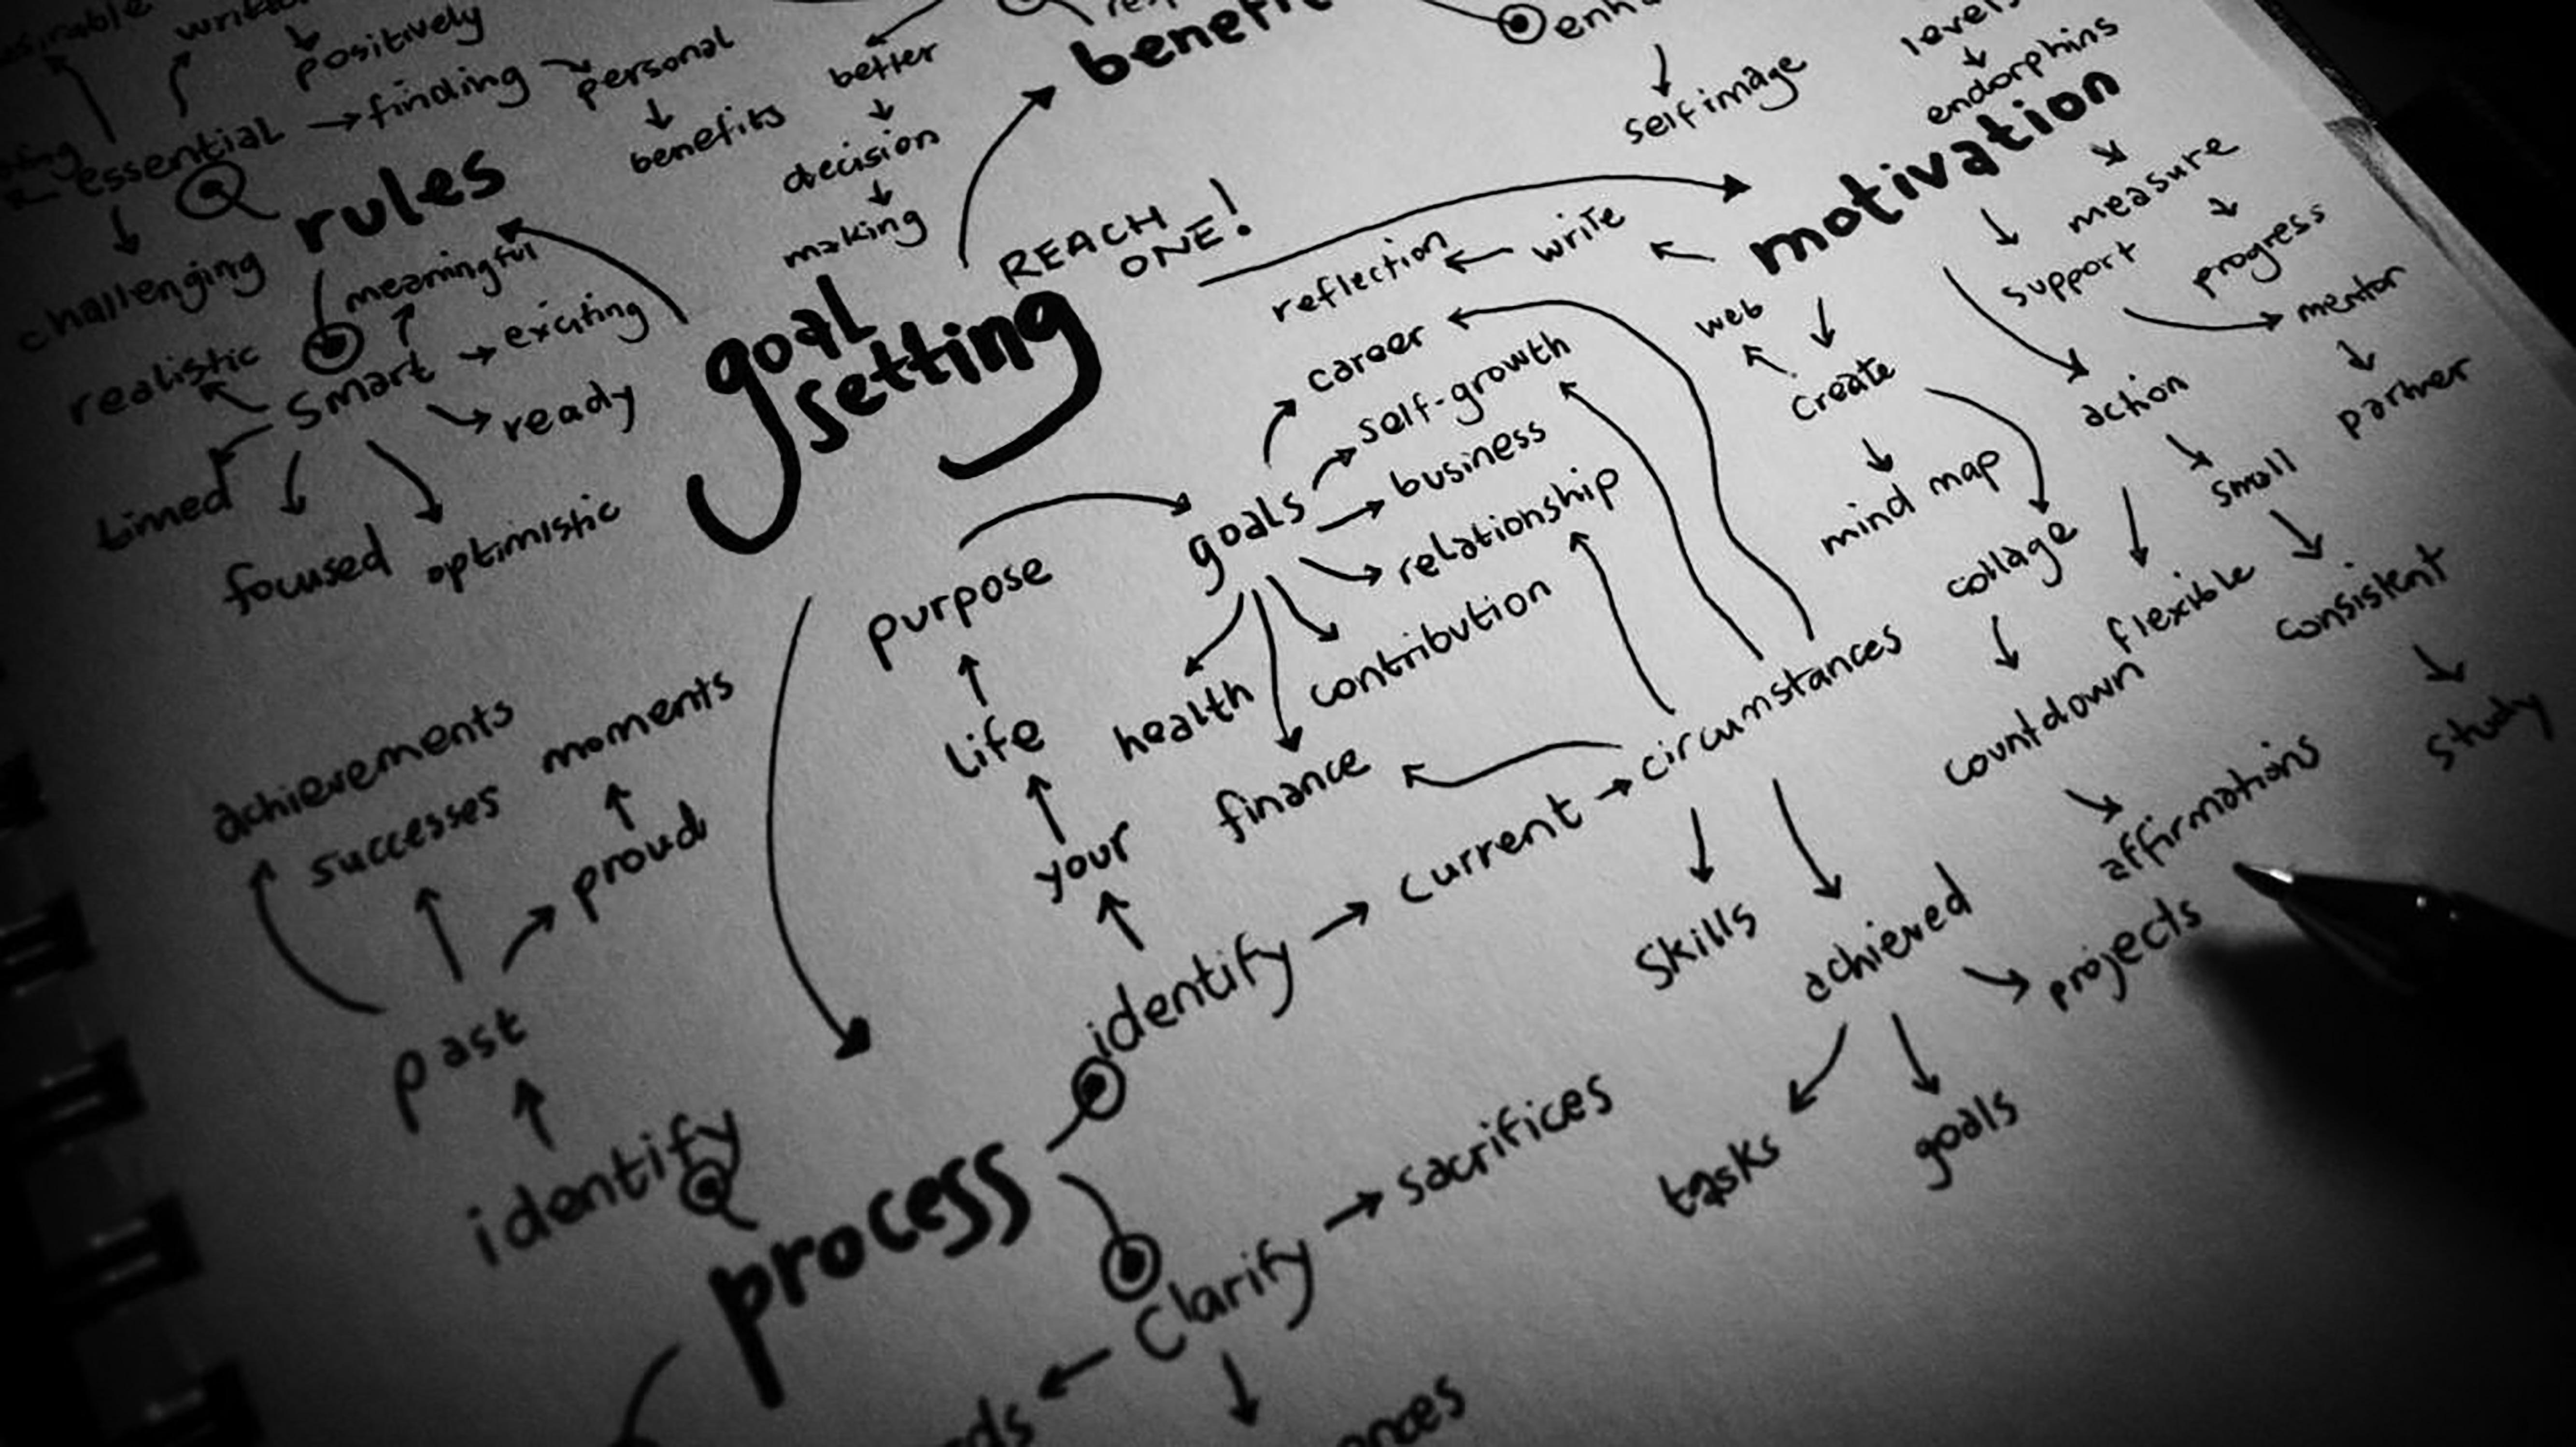 positively
essential
finding
personal
benefits
better
decision
making
rules
challenging
meaningful
realistic
smart
exciting
ready
timed
focused
optimistic
REACH
ONE!
goal
setting
self image
levels
endorphins
motivation
measure
progress
support
mentor
partner
write
reflection
web
create
mind map
collage
countdown
affirmations
action
small
flexible
consistent
study
career
self-growth
business
relationship
contribution
goals
health
finance
purpose
life
your
identify
current
circumstances
skills
achieved
projects
goals
tasks
achievements
successes
moments
proud
past
identify
process
clarify
sacrifices